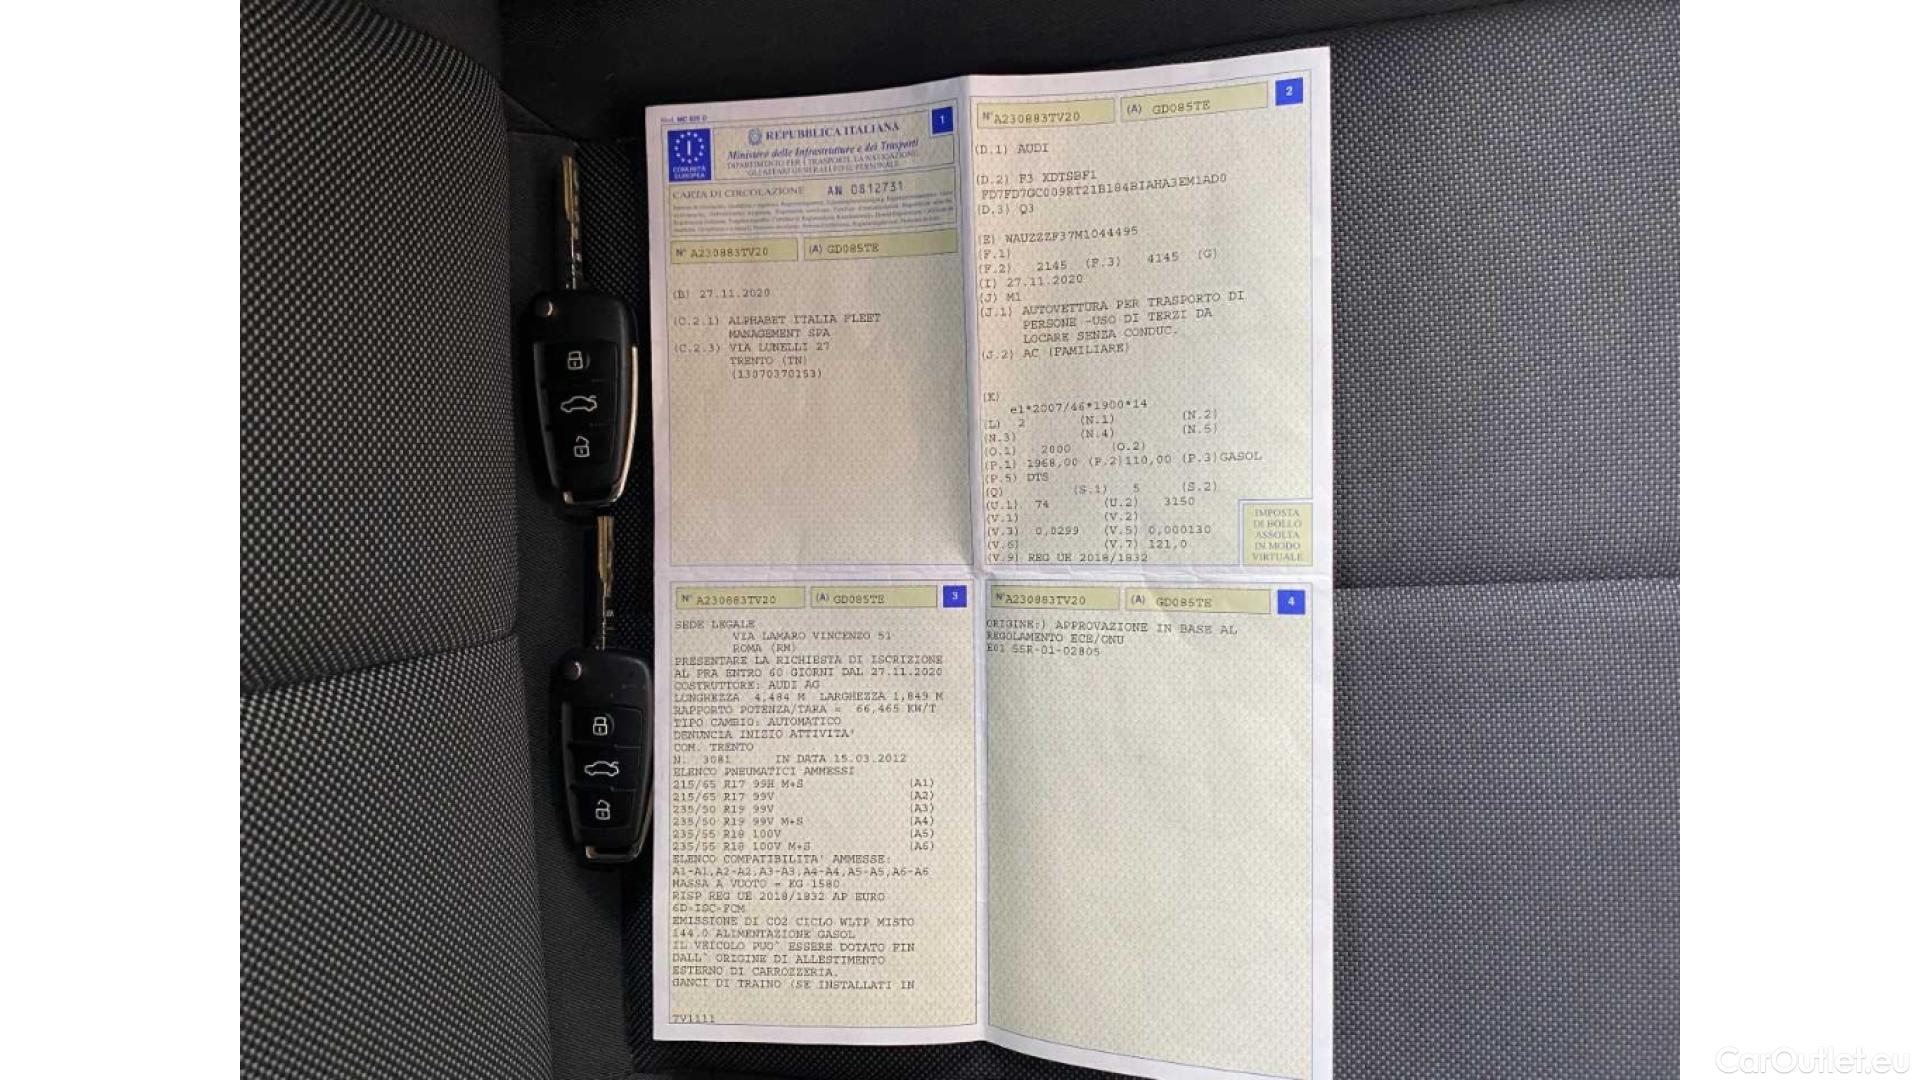 Mod. MC 820 D
1
I
COMUNITÀ
EUROPEA
REPUBBLICA ITALIANA
Ministero delle Infrastrutture e dei Trasporti
DIPARTIMENTO PER I TRASPORTI, LA NAVIGAZIONE,
GLI AFFARI GENERALI ED IL PERSONALE
CARTA DI CIRCOLAZIONE AN 0812731
N° A230883TV20 (A) GD085TE
(B) 27.11.2020
(C.2.1) ALPHABET ITALIA FLEET
MANAGEMENT SPA
(C.2.3) VIA LUNELLI 27
TRENTO (TN)
(13070370153)
2
N° A230883TV20 (A) GD085TE
(D.1) AUDI
(D.2) F3 XDTSBF1
FD7FD7GC009RT21B184BIAHA3EM1AD0
(D.3) Q3
(E) WAUZZZF37M1044495
(F.1)
(F.2) 2145 (F.3) 4145 (G)
(I) 27.11.2020
(J) M1
(J.1) AUTOVETTURA PER TRASPORTO DI
PERSONE -USO DI TERZI DA
LOCARE SENZA CONDUC.
(J.2) AC (FAMILIARE)
(K)
e1*2007/46*1900*14
(L) 2 (N.1) (N.2)
(N.3) (N.4) (N.5)
(O.1) 2000 (O.2)
(P.1) 1968,00 (P.2) 110,00 (P.3) GASOL
(P.5) DTS
(Q) (S.1) 5 (S.2)
(U.1) 74 (U.2) 3150
(V.1) (V.2)
(V.3) 0,0299 (V.5) 0,000130
(V.6) (V.7) 121,0
(V.9) REG UE 2018/1832
IMPOSTA
DI BOLLO
ASSOLTA
IN MODO
VIRTUALE
N° A230883TV20 (A) GD085TE
3
SEDE LEGALE
VIA LAMARO VINCENZO 51
ROMA (RM)
PRESENTARE LA RICHIESTA DI ISCRIZIONE
AL PRA ENTRO 60 GIORNI DAL 27.11.2020
COSTRUTTORE: AUDI AG
LUNGHEZZA 4,484 M LARGHEZZA 1,849 M
RAPPORTO POTENZA/TARA = 66,465 KW/T
TIPO CAMBIO: AUTOMATICO
DENUNCIA INIZIO ATTIVITA'
COM. TRENTO
N. 3081 IN DATA 15.03.2012
ELENCO PNEUMATICI AMMESSI
215/65 R17 99H M+S (A1)
215/65 R17 99V (A2)
235/50 R19 99V (A3)
235/50 R19 99V M+S (A4)
235/55 R18 100V (A5)
235/55 R18 100V M+S (A6)
ELENCO COMPATIBILITA' AMMESSE:
A1-A1,A2-A2,A3-A3,A4-A4,A5-A5,A6-A6
MASSA A VUOTO = KG 1580
RISP REG UE 2018/1832 AP EURO
6D-ISC-FCM
EMISSIONE DI CO2 CICLO WLTP MISTO
144.0 ALIMENTAZIONE GASOL
IL VEICOLO PUO` ESSERE DOTATO FIN
DALL` ORIGINE DI ALLESTIMENTO
ESTERNO DI CARROZZERIA.
GANCI DI TRAINO (SE INSTALLATI IN
7V1111
N° A230883TV20 (A) GD085TE
4
ORIGINE:) APPROVAZIONE IN BASE AL
REGOLAMENTO ECE/ONU
E01 55R-01-02805
CarOutlet.eu